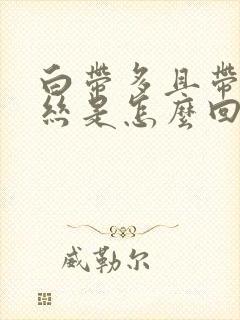 白帶多且帶
絲是怎麼回
威勒尔